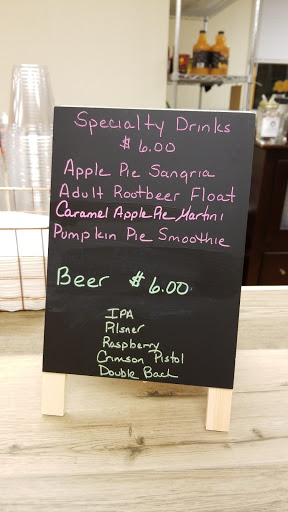 Specialty Drinks
$6.00
Apple Pie Sangria
Adult Rootbeer Float
Caramel Apple Pie Martini
Pumpkin Pie Smoothie
Beer $6.00
IPA
Pilsner
Raspberry
Crimson Pistol
Double Bach